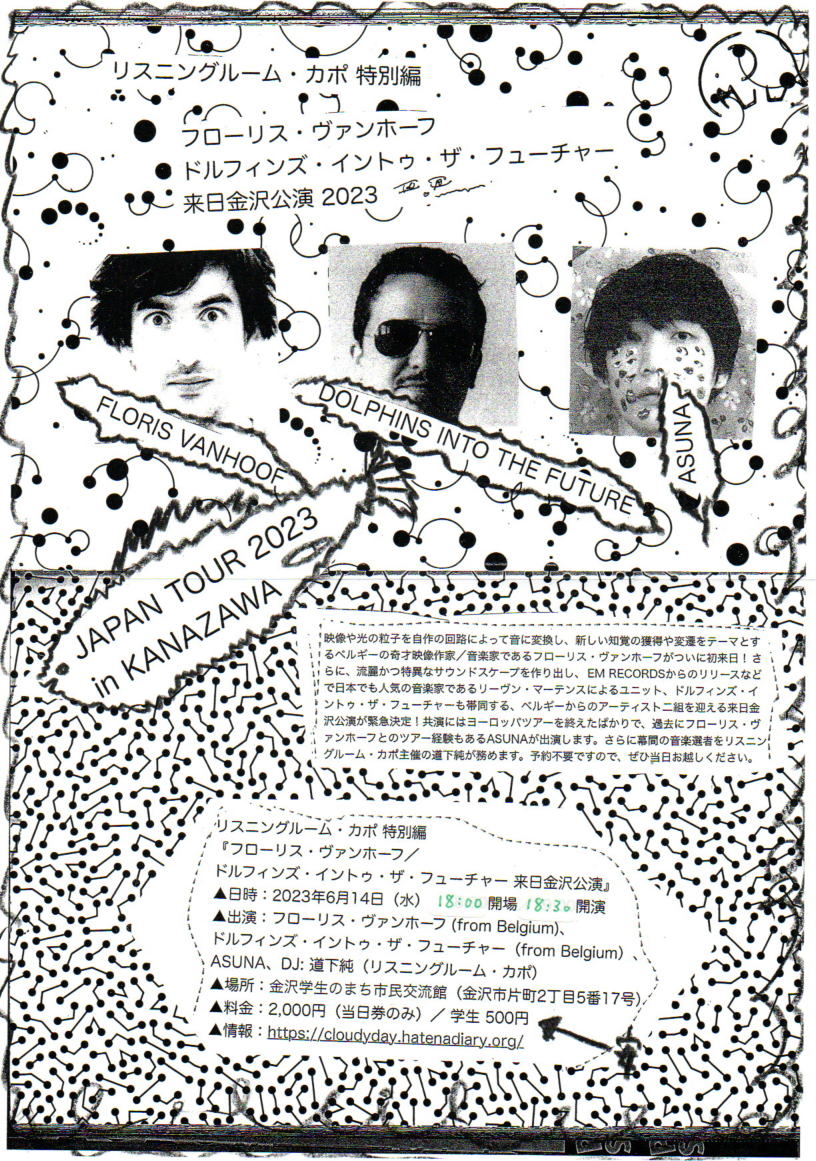 リスニングルーム・カポ 特別編
フローリス・ヴァンホーフ
ドルフィンズ・イントゥ・ザ・フューチャー
来日金沢公演 2023
FLORIS VANHOOF
DOLPHINS INTO THE FUTURE
ASUNA
JAPAN TOUR 2023
in KANAZAWA
映像や光の粒子を自作の回路によって音に変換し、新しい知覚の獲得や変遷をテーマとす
るベルギーの奇才映像作家／音楽家であるフローリス・ヴァンホーフがついに初来日！さ
らに、流麗かつ特異なサウンドスケープを作り出し、EM RECORDSからのリリースなど
で日本でも人気の音楽家であるリーヴン・マーテンスによるユニット、ドルフィンズ・イ
ントゥ・ザ・フューチャーも帯同する、ベルギーからのアーティスト二組を迎える来日金
沢公演が緊急決定！共演にはヨーロッパツアーを終えたばかりで、過去にフローリス・ヴ
ァンホーフとのツアー経験もあるASUNAが出演します。さらに幕間の音楽選者をリスニン
グルーム・カポ主催の道下純が務めます。予約不要ですので、ぜひ当日お越しください。
リスニングルーム・カポ 特別編
『フローリス・ヴァンホーフ／
ドルフィンズ・イントゥ・ザ・フューチャー 来日金沢公演』
▲日時：2023年6月14日（水） 18:00 開場 18:30 開演
▲出演：フローリス・ヴァンホーフ (from Belgium)、
ドルフィンズ・イントゥ・ザ・フューチャー（from Belgium）、
ASUNA、DJ: 道下純（リスニングルーム・カポ）
▲場所：金沢学生のまち市民交流館（金沢市片町2丁目5番17号）
▲料金：2,000円（当日券のみ）／ 学生 500円
▲情報：https://cloudyday.hatenadiary.org/